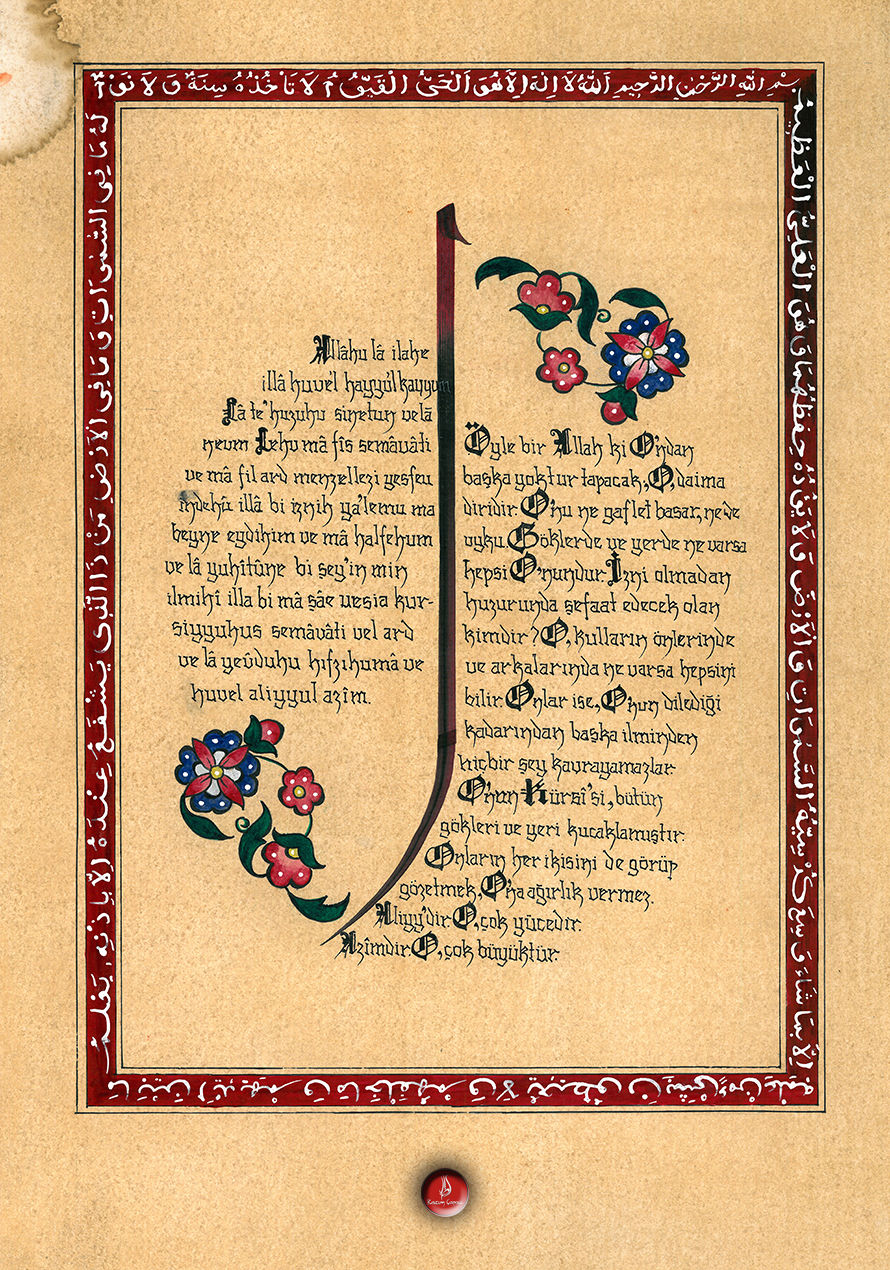 بِسْمِ اللهِ الرَّحْمٰنِ الرَّحِيمِ اَللهُ لَا اِلٰهَ اِلَّا هُوَ اَلْحَىُّ الْقَيُّومُ لَا تَاْخُذُهُ سِنَةٌ وَ لَا نَوْمٌ
لَهُ مَا فِى السَّمٰوَاتِ وَ مَا فِى الْاَرْضِ مَنْ ذَا الَّذِى يَشْفَعُ عِنْدَهُ اِلَّا بِاِذْنِهِ يَعْلَمُ
مَا بَيْنَ اَيْدِيهِمْ وَ مَا خَلْفَهُمْ وَ لَا يُحِيطُونَ بِشَىْءٍ مِنْ عِلْمِهِ
اِلَّا بِمَا شَاءَ وَسِعَ كُرْسِيُّهُ السَّمٰوَاتِ وَالْاَرْضَ وَ لَا يَؤُدُهُ حِفْظُهُمَا وَ هُوَ الْعَلِىُّ الْعَظِيمُ
Allâhu lâ ilahe
illâ huvel hayyûl kayyun
Lâ te'huzuhu sinetun velâ
nevm Lehu mâ fîs semâvâti
ve mâ fil ard menzellezi yesfeu
indehû illâ bi iznih ya'lemu ma
beyne eydihim ve mâ halfehum
ve lâ yuhitûne bi şey'in min
ilmihî illa bi mâ şâe vesia kur-
siyyuhus semâvâti vel ard
ve lâ yeûduhu hıfzıhumâ ve
huvel aliyyul azîm.
Öyle bir Allah ki O'ndan
başka yoktur tapacak, O, daima
diridir. O'nu ne gaflet basar, ne de
uyku. Göklerde ve yerde ne varsa
hepsi O'nundur. İzni olmadan
huzurunda şefaat edecek olan
kimdir? O, kulların önlerinde
ve arkalarında ne varsa hepsini
bilir. Onlar ise, O'nun dilediği
kadarından başka ilminden
hiçbir şey kavrayamazlar
O'nun Kürsî'si, bütün
gökleri ve yeri kucaklamıştır.
Onların her ikisini de görüp
gözetmek, O'na ağırlık vermez.
Aliyy'dir. O, çok yücedir.
Azîmdir. O, çok büyüktür.